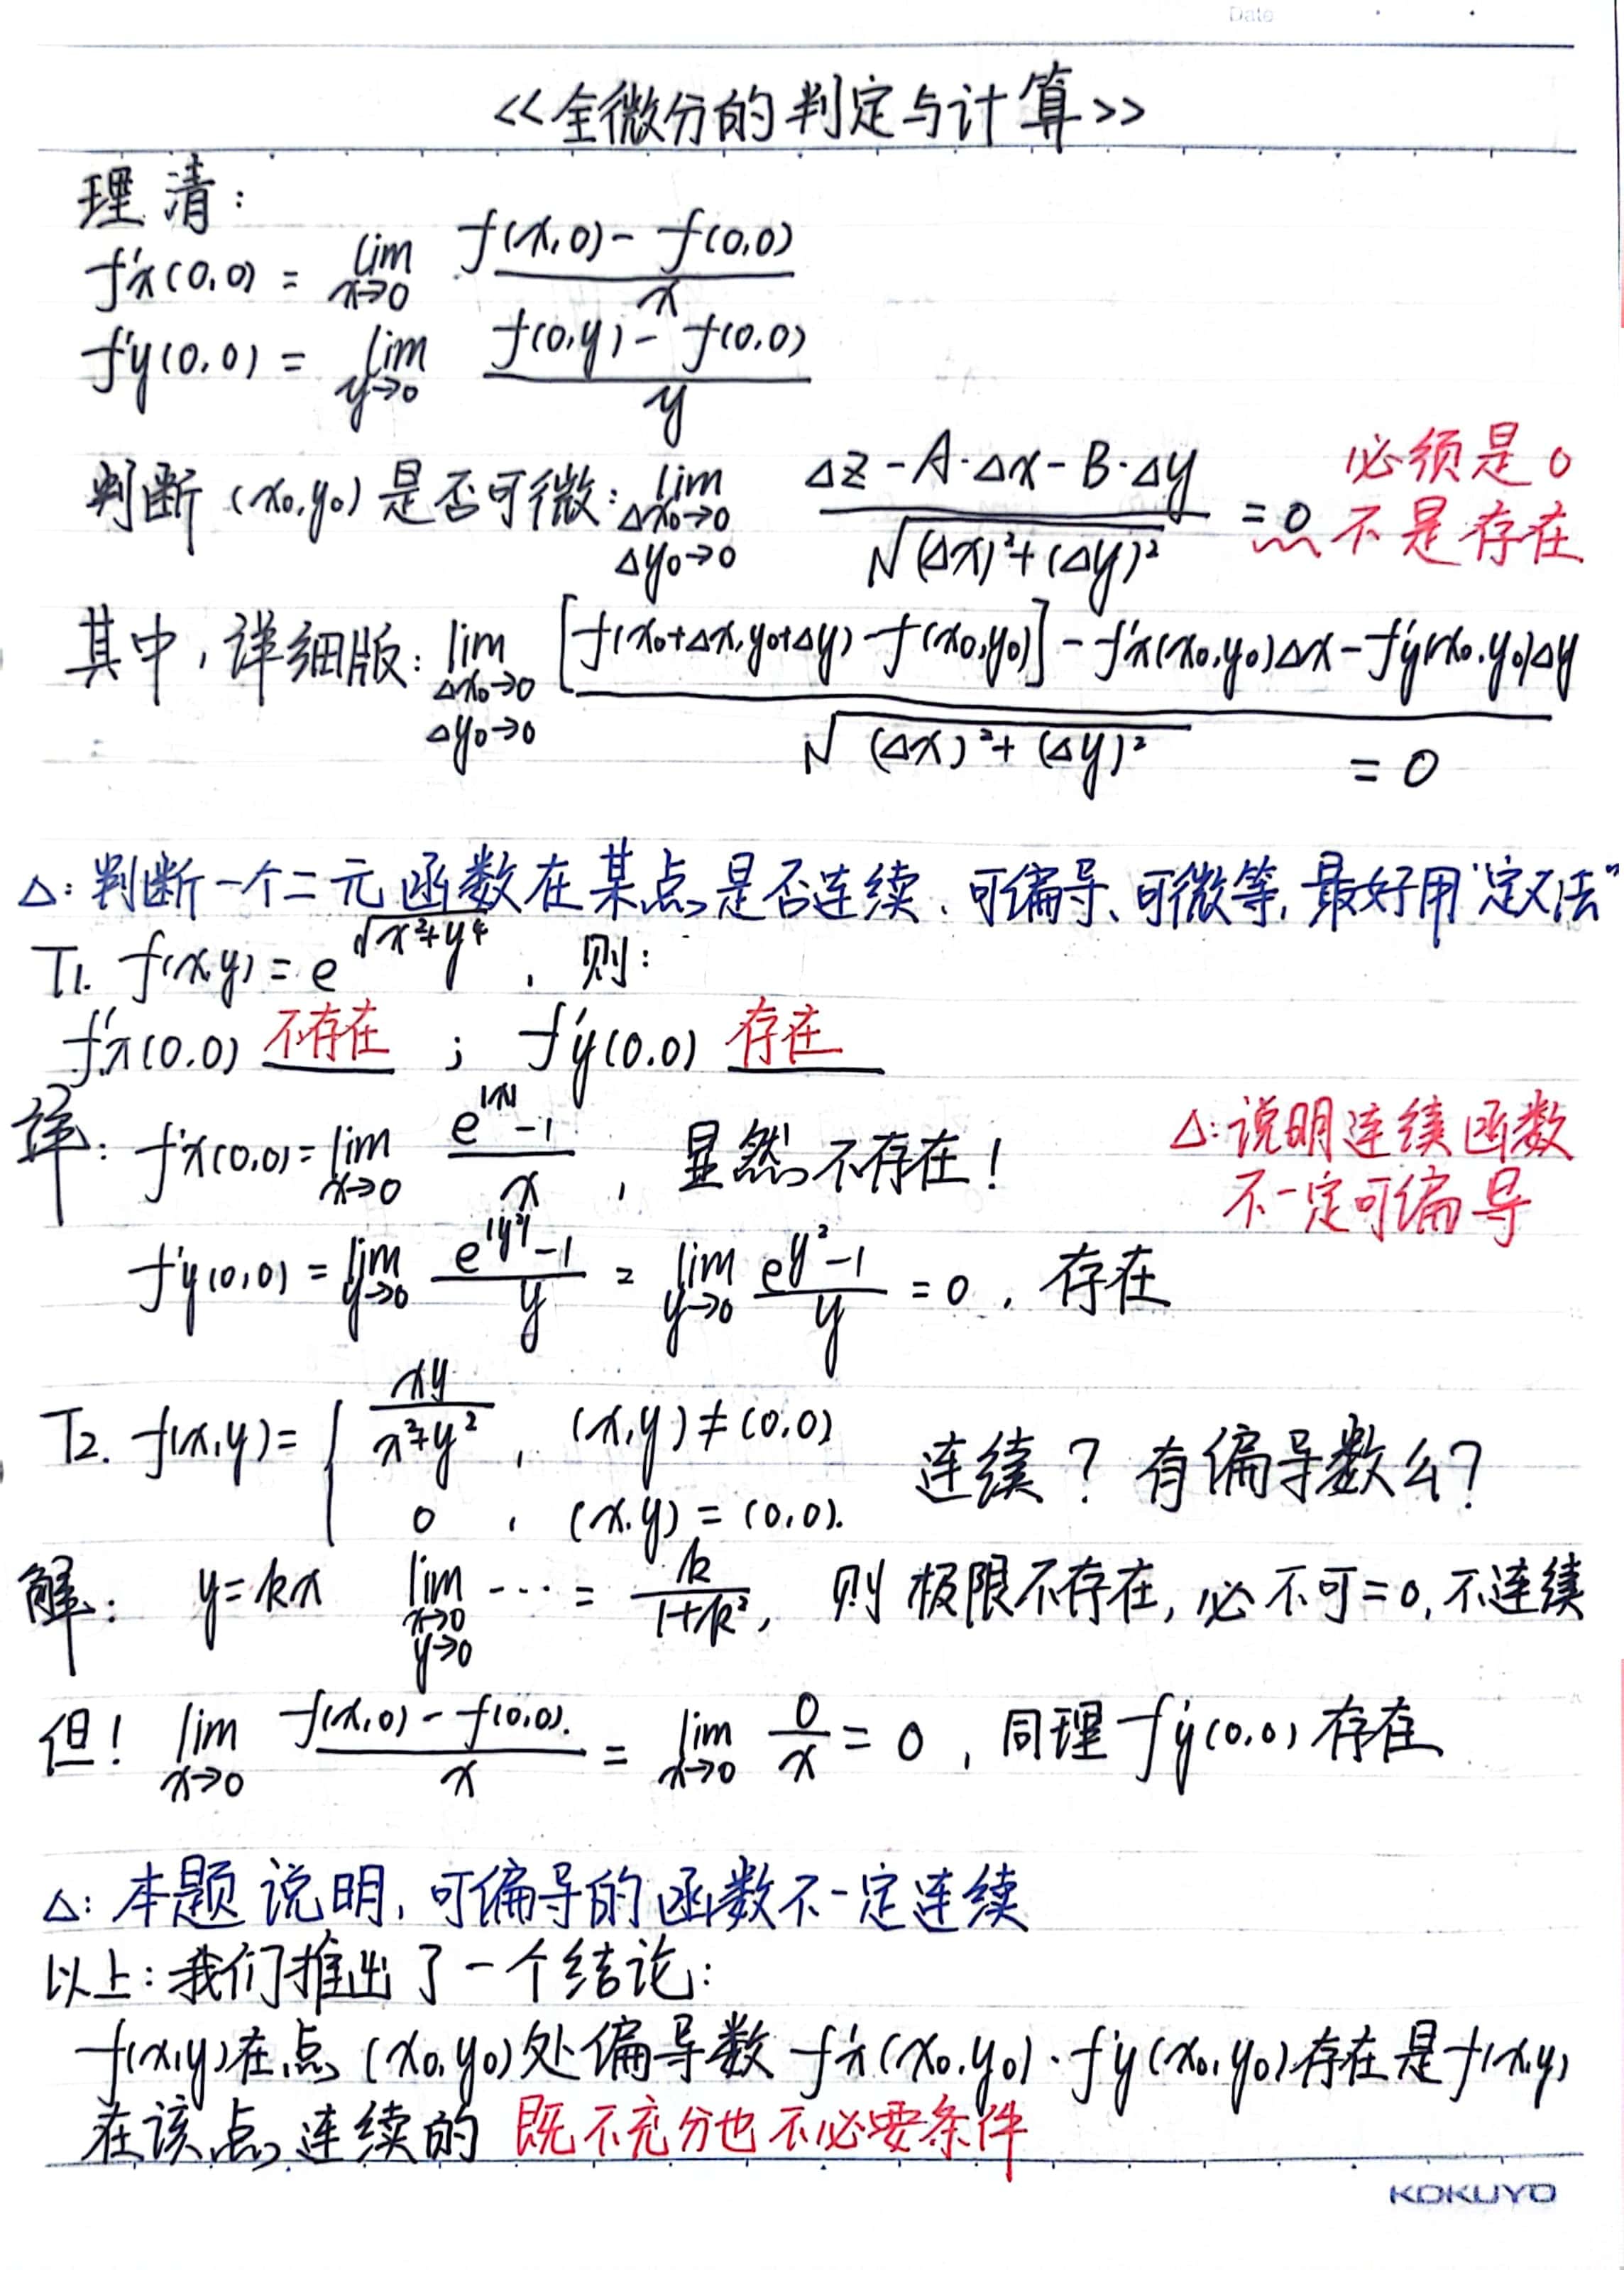 Date
<<全微分的判定与计算>>
理清:
f'x(0,0) = lim x→0 (f(x,0) - f(0,0))/x
f'y(0,0) = lim y→0 (f(0,y) - f(0,0))/y
判断(x₀,y₀)是否可微: lim Δx₀→0 Δy₀→0 (Δz - A·Δx - B·Δy)/√((Δx)²+(Δy)²) = 0 必须是0
不是存在
其中,详细版: lim Δx₀→0 Δy₀→0 ([f(x₀+Δx,y₀+Δy) - f(x₀,y₀)] - f'x(x₀,y₀)Δx - f'y(x₀,y₀)Δy)/√((Δx)²+(Δy)²) = 0
Δ: 判断一个二元函数在某点是否连续、可偏导、可微等,最好用"定义法"
T1. f(x,y) = e^√(x²+y⁴) , 则:
f'x(0,0) 不存在 ; f'y(0,0) 存在
详: f'x(0,0) = lim x→0 (e^|x| - 1)/x , 显然不存在!
Δ: 说明连续函数
不一定可偏导
f'y(0,0) = lim y→0 (e^|y²| - 1)/y = lim y→0 (e^y² - 1)/y = 0 , 存在
T2. f(x,y) = { xy/(x²+y²) , (x,y) ≠ (0,0)
0 , (x,y) = (0,0).
连续? 有偏导数么?
解: y=kx lim x→0 y→0 ··· = k/(1+k²), 则极限不存在,必不可=0,不连续
但! lim x→0 (f(x,0) - f(0,0))/x = lim x→0 0/x = 0 , 同理f'y(0,0)存在
Δ: 本题说明,可偏导的函数不一定连续
以上:我们推出了一个结论:
f(x,y)在点(x₀,y₀)处偏导数f'x(x₀,y₀)、f'y(x₀,y₀)存在是f(x,y)
在该点连续的 既不充分也不必要条件
KOKUYO